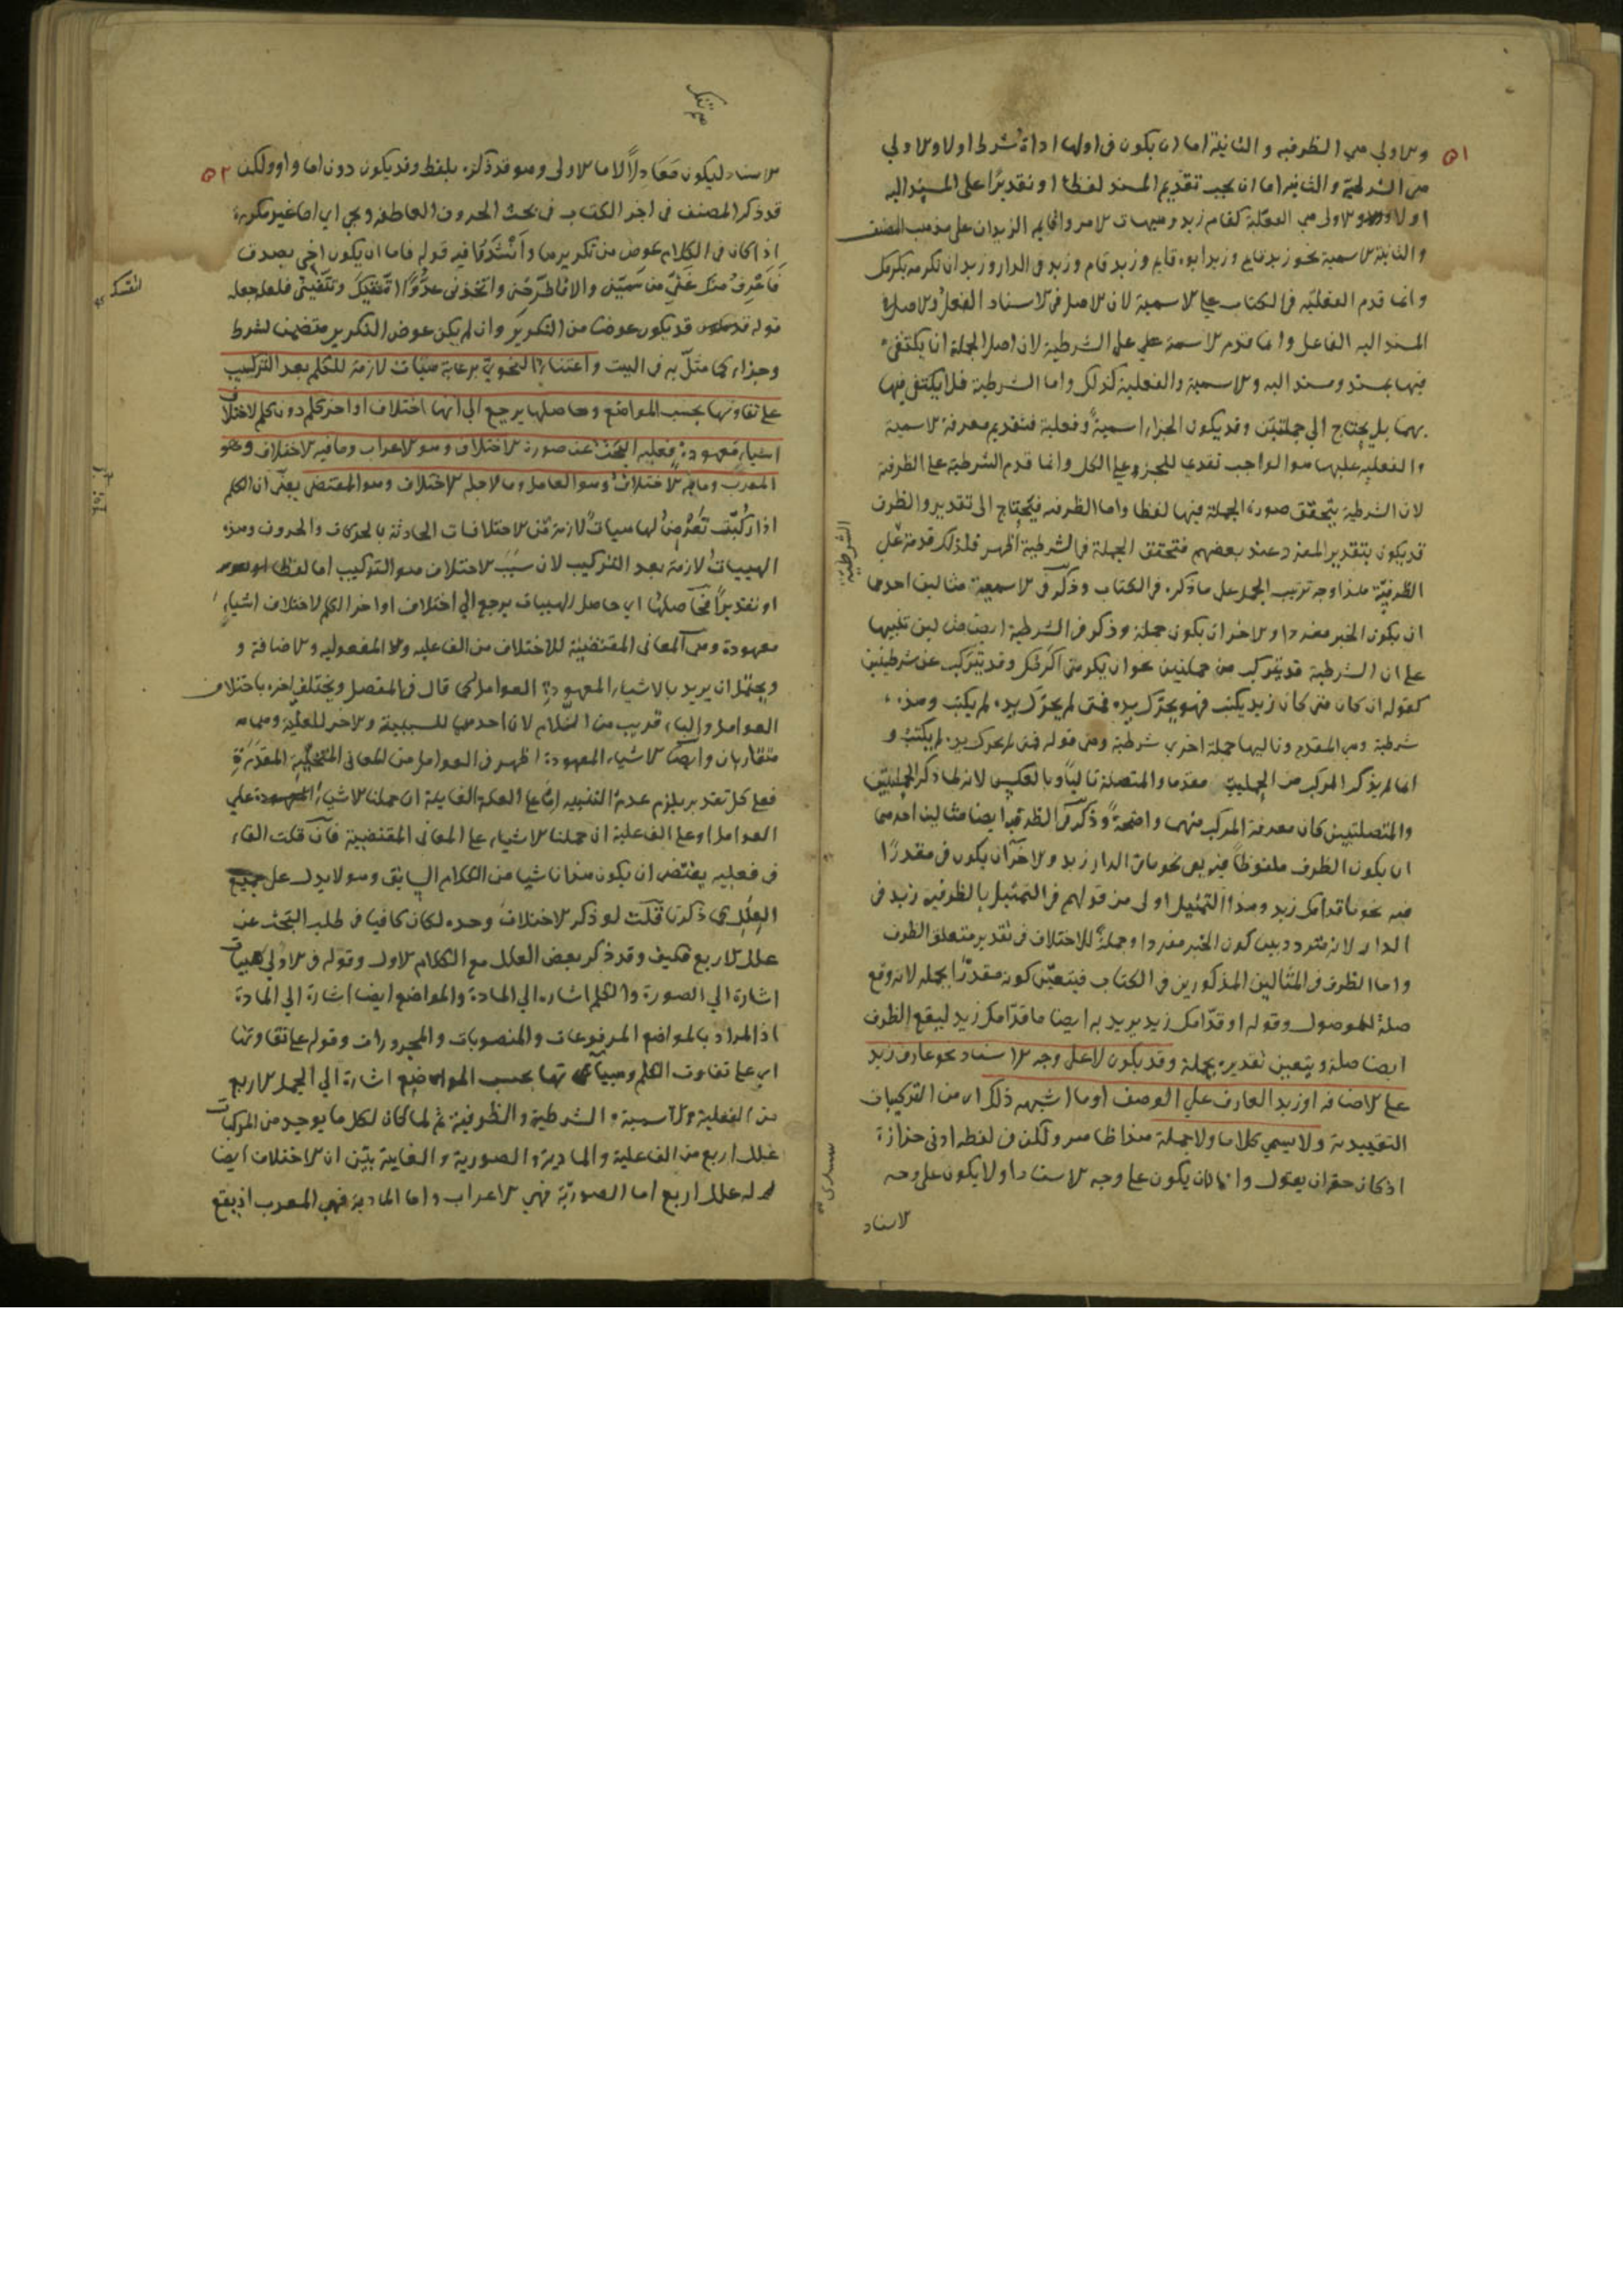 ٥١
والاولى هي الظرفية والثانية اما ان يكون في اولها اداة شرط اولا والاولى
هي الشرطية والثانية اما ان يجب تقديم المسند لفظا او تقديرا على المسند اليه
اولا والاولى هي الفعلية كقام زيد وهيهات الامر واقايم الزيدان على مذهب المصنف
والثانية الاسمية نحو زيد قايم وزيد ابوه قايم وزيد قام وزيد في الدار وزيد ان تكرمه يكرمك
وانما قدم الفعلية في الكتاب على الاسمية لان الاصل في الاسناد الفعل والاصل في
المسند اليه الفاعل وانما قدم الاسمية على الشرطية لان اصل الجملة ان يكتفى
فيها بمسند ومسند اليه والاسمية والفعلية كذلك واما الشرطية فلا يكتفى فيها
بهما بل يحتاج الى جملتين وقد يكون الجزاء اسمية وفعلية فتقديم معرفة الاسمية
والفعلية عليها هو الواجب تقديما للجزو على الكل وانما قدم الشرطية على الظرفية
لان الشرطية يتحقق صورة الجملة فيها لفظا واما الظرفية فيحتاج الى تقدير والظرف
قد يكون بتقدير المفرد عند بعضهم فتحقق الجملة في الشرطية اظهر فلذلك قدمه على
الشرطية
الظرفية هذا وجه ترتيب الجمل على ما ذكره في الكتاب وذكر في الاسمية مثالين احدهما
ان يكون الخبر مفردا والاخر ان يكون جملة وذكر في الشرطية ايضا مثالين تنبيها
على ان الشرطية قد تتركب من جملتين نحو ان يكرمني اكرمك وقد يتركب عن شرطيتين
كقوله ان كان متى كان زيد يكتب فهو يحرك يده فمتى لم يحرك يده لم يكتب وهذه
شرطية وهي المقدم وتاليها جملة اخرى شرطية وهي قوله فمتى لم يحرك يده لم يكتب و
انما لم يذكر المركب من الجملية مقدما والمتصلة تاليا وبالعكس لانه لما ذكر الجمليتين
والمتصلتين كان معرفة المركب منهما واضحة وذكر في الظرفية ايضا مثالين احدهما
ان يكون الظرف ملفوظا فيه بفي نحو ما في الدار زيد والاخر ان يكون في مقدرا
فيه نحو ما قدامك زيد وهذا التمثيل اولى من قولهم في التمثيل بالظرفية زيد في
الدار لانه متردد بين كون الخبر مفردا وجملة للاختلاف في تقدير متعلق الظرف
واما الظرف في المثالين المذكورين في الكتاب فيتعين كونه مقدرا بجملة لانه وقع
صلة للموصول وقوله او قدامك زيد يريد به ايضا ما قدامك زيد ليقع الظرف
ايضا صلة ويتعين تقديره بجملة وقد يكون لا على وجه الاسناد نحو عارف زيد
على الاضافة او زيد العارف على الوصف او ما اشبهه ذلك اي من التركيبات
التقييدية ولا يسمى كلاما ولا جملة هذا ظاهر ولكن في لفظه ادنى حزازة
اذ كان حقه ان يقول واما ان يكون على وجه الاسناد او لا يكون على وجه
الاسناد
٥٢
الاسناد ليكون معادلا لاما الاولى وهو قد ذكره بلفظ وقد يكون دون اما واو ولكن
قد ذكر المصنف في اخر الكتاب في بحث الحروف العاطفة ويجي اي اما غير مكررة
اذا كان في الكلام عوض من تكريرها وانشدنا فيه قوله فاما ان يكون اخي بصدق
فاعرف منك غثي من سميني والا فاطرحني واتخذني عدوا اتقيك وتتقيني فلعله جعل
قوله قد يكون عوضا من التكرير وان لم يكن عوض التكرير متضمنا لشرط
وجزاء كما مثل به في البيت واعتناء النحوي برعاية هيئات لازمة للكلم بعد التركيب
على تفاوتها بحسب المواضع وحاصلها يرجع الى انها اختلاف اواخر كلم دون كلم لاختلاف
اشياء معهودة فعليه البحث عن صورة الاختلاف وهو الاعراب وما فيه الاختلاف وهو
المعرب وما به الاختلاف وهو العامل وما لاجله الاختلاف وهو المقتضي يعني ان الكلم
اذا ركبت تعرض لها هيات لازمة من الاختلافات الحادثة بالحركات والحروف وهذه
الهييات لازمة بعد التركيب لان سبب الاختلاف هو التركيب اما لفظا
او تقديرا فحاصلها اي حاصل الهييات يرجع الى اختلاف اواخر الكلم لاختلاف اشياء
معهودة وهي المعاني المقتضية للاختلاف من الفاعلية والمفعولية والاضافة و
ويحتمل ان يريد بالاشياء المعهودة العوامل كما قال في المفصل ويختلف اخره باختلاف
العوامل والباء قريب من اللام لان احدهما للسببية والاخر للعلية وهما
متقاربان وايضا الاشياء المعهودة اظهر في العوامل من المعاني المتخيلة المقدرة
فعلى كل تقدير يلزم عدم التنبيه اما على العلة الغايية ان حملنا الاشياء المعهودة على
العوامل او على الفاعلية ان حملنا الاشياء على المعاني المقتضية فان قلت الفاء
في فعليه يقتضي ان يكون مسببا شيا من الكلام السابق وهو لا يدل على جميع
العلل كما ذكرنا قلت لو ذكر الاختلاف وحده لكان كافيا في طلب البحث عن
علله الاربع فكيف وقد ذكر بعض العلل مع الكلام الاول وقوله في الاولى هييات
اشارة الى الصورة والكلم اشارة الى المادة والمواضع ايضا اشارة الى المادة
اذ المراد بالمواضع المرفوعات والمنصوبات والمجرورات وقوله على تفاوتها
اي على تفاوت الكلم وهيياتها بحسب المواضع اشارة الى الجمل الاربع
من الفعلية والاسمية والشرطية والظرفية ثم لما كان لكل ما يوجد من المركبات
علل اربع من الفاعلية والمادية والصورية والغايية بين ان الاختلاف ايضا
له علل اربع اما الصورية فهي الاعراب واما المادية فهي المعرب اذ يقع